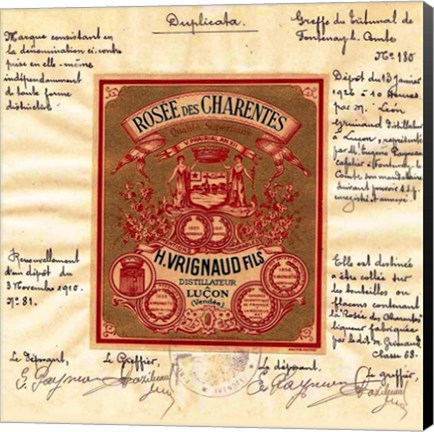 Duplicata.
Greffe du Tribunal de
Fontenay-l. Comte
N° 180
Marque consistant en
la dénomination ci-contre
prise en elle-même
indépendamment
de toute forme
distinctive.
Dépôt du 13 Janvier
1926 - 10 Heures
par M. Léon
Grimaud distillateur
à Luçon, représenté
par M. Eugène
cafetier à Fontenay-le-
Comte son mandataire
suivant pouvoir s.s.p.
enregistré et annexé
ROSÉE DES CHARENTES
Qualité Supérieure
H. VRIGNAUD FILS
DISTILLATEUR
À
LUÇON
(Vendée)
Renouvellement
d'un dépôt du
3 Novembre 1910.
N° 81.
Elle est destinée
à être collée sur
les bouteilles ou
flacons contenant
la "Rosée des Charentes"
liqueur fabriquée
par le dit M. Grimaud
Classe 68.
Le déposant, Le Greffier,
Le déposant, Le greffier,